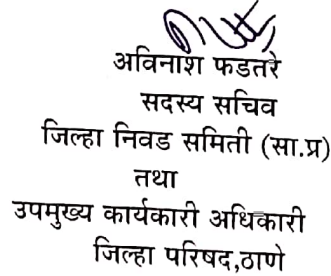 अविनाश फडतरे
सदस्य सचिव
जिल्हा निवड समिती (सा.प्र)
तथा
उपमुख्य कार्यकारी अधिकारी
जिल्हा परिषद,ठाणे